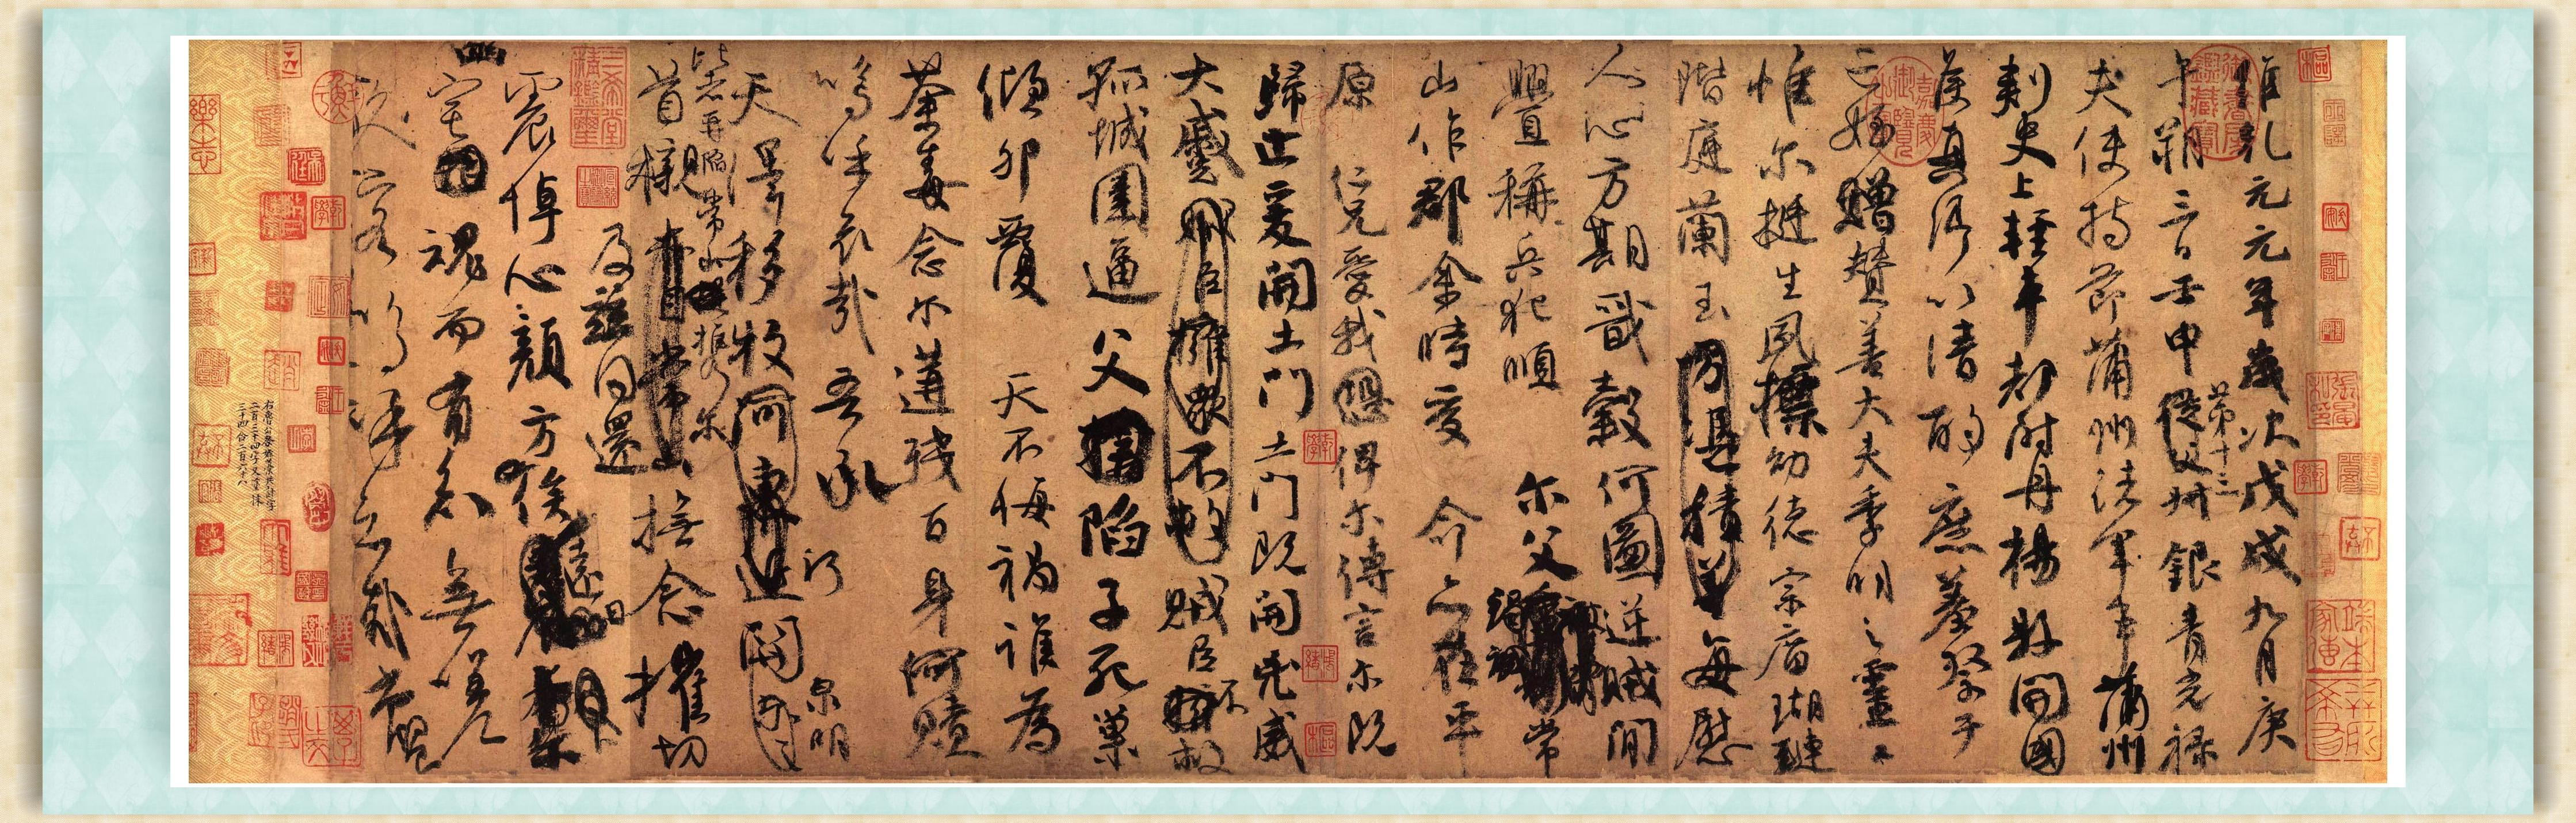 維乾元元年歲次戊戌九月庚
午朔三日壬申第十三從父叔銀青光祿
夫使持節蒲州諸軍事蒲州
刺史上輕車都尉丹楊縣開國
侯真卿以清酌庶羞祭于
亡姪贈贊善大夫季明之靈曰
惟爾挺生夙標幼德宗廟瑚璉
階庭蘭玉方憑積善每慰
人心方期戩穀何圖逆賊閒
釁稱兵犯順爾父竭誠常
山作郡余時受命亦在平
原仁兄愛我恐俾爾傳言爾既
歸止爰開土門土門既開兇威
大蹙賊臣擁眾不救賊臣不救
孤城圍逼父陷子死巢
傾卵覆天不悔禍誰為
荼毒念爾遘殘百身何贖
嗚呼哀哉吾承
天澤移牧河東近河關泉明
比者再陷常山攜爾
首櫬及茲同還撫念摧切
震悼心顏方俟遠日卜爾幽
宅魂而有知無嗟
久客嗚呼哀哉尚饗